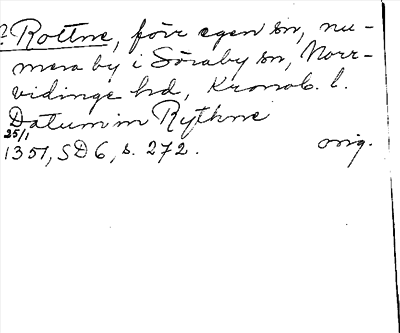 ? Rottne, förr egen sn, nu-
mera by i Söraby sn, Norr-
vidinge hd, Kronob. l.
Datum in Rythne
25/1
1351, SD 6, s. 272. orig.